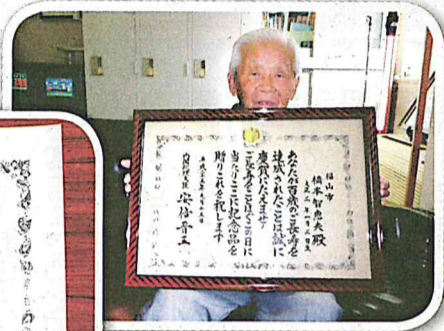 福山市
橋本智恵夫殿
あなたが百歳のご長寿を
達成されたことは誠に
慶賀にたえません
ご長寿をことほぐこの日に
当たりここに記念品を
贈りこれを祝します
内閣総理大臣 安倍晋三